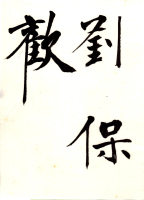 劉保
歡